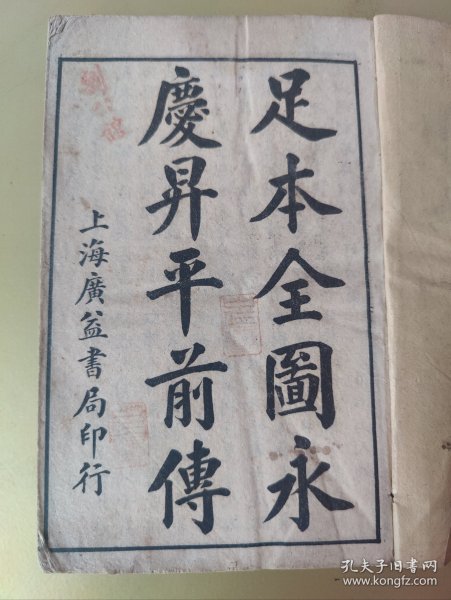 足本全圖永
慶昇平前傳
上海廣益書局印行
孔夫子旧书网
www.kongfz.com